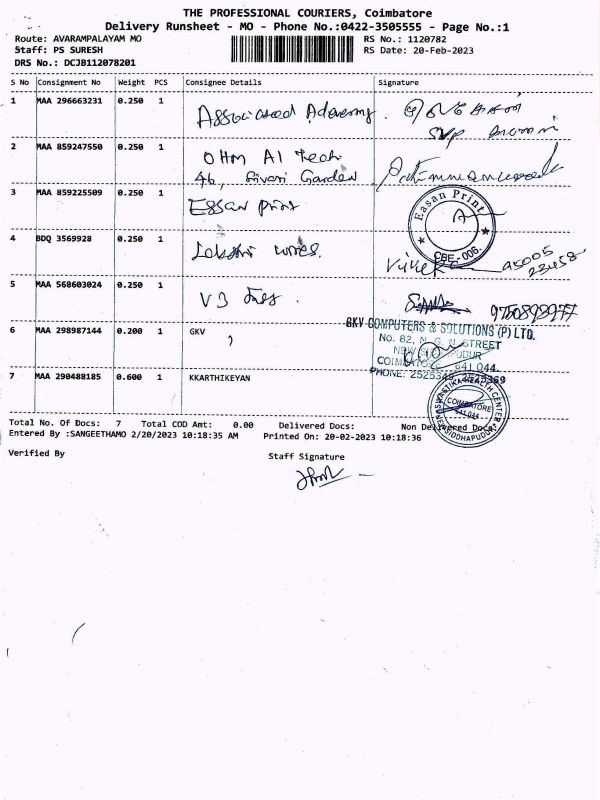 THE PROFESSIONAL COURIERS, Coimbatore
Delivery Runsheet - MO - Phone No.:0422-3505555 - Page No.:1
Route: AVARAMPALAYAM MO
RS No.: 1120782
Staff: PS SURESH
RS Date: 20-Feb-2023
DRS No.: DCJB112078201
S No Consignment No Weight PCS Consignee Details Signature
1 MAA 296663231 0.250 1
2 MAA 859247550 0.250 1 OHM AI Tech
46, Garden
3 MAA 859225509 0.250 1 Essar print
Easan Print
CBE-006.
4 BDQ 3569928 0.250 1
Vivek 95005
23458
5 MAA 568603024 0.250 1 V3
GKV COMPUTERS & SOLUTIONS (P) LTD.
6 MAA 298987144 0.200 1 GKV
No. 82, N. G. N. STREET
NEW SIDDHAPUDUR
COIMBATORE - 641 044.
7 MAA 290488185 0.600 1 KKARTHIKEYAN
COIMBATORE
641 044
Total No. Of Docs: 7 Total COD Amt: 0.00 Delivered Docs: Non Delivered Docs:
Entered By :SANGEETHAMO 2/20/2023 10:18:35 AM Printed On: 20-02-2023 10:18:36
Verified By Staff Signature